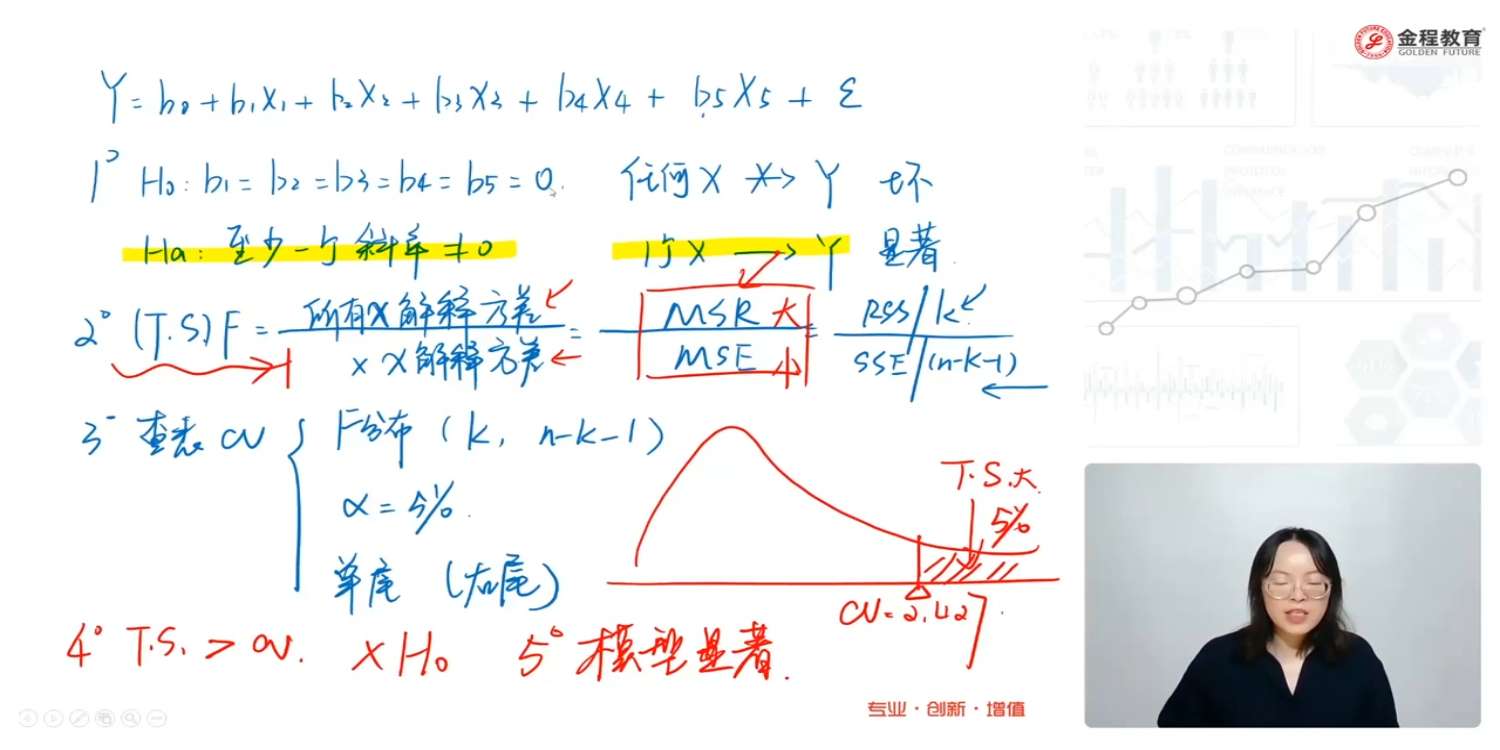 金程教育
GOLDEN FUTURE
Y = b0 + b1X1 + b2X2 + b3X3 + b4X4 + b5X5 + ε
1° H0: b1 = b2 = b3 = b4 = b5 = 0. 任何X ✕→ Y 坏
Ha: 至少一个斜率≠0 1个X → Y 显著.
2° (T.S) F = 所有X解释方差 / ×X解释方差 = MSR大 / MSE小 = RSS/k / SSE/(n-k-1)
3° 查表 CV { F分布 (k, n-k-1)
α = 5%.
单尾 (右尾)
T.S.大.
5%
CV=2.427
4° T.S. > CV. ×H0 5° 模型显著.
专业·创新·增值